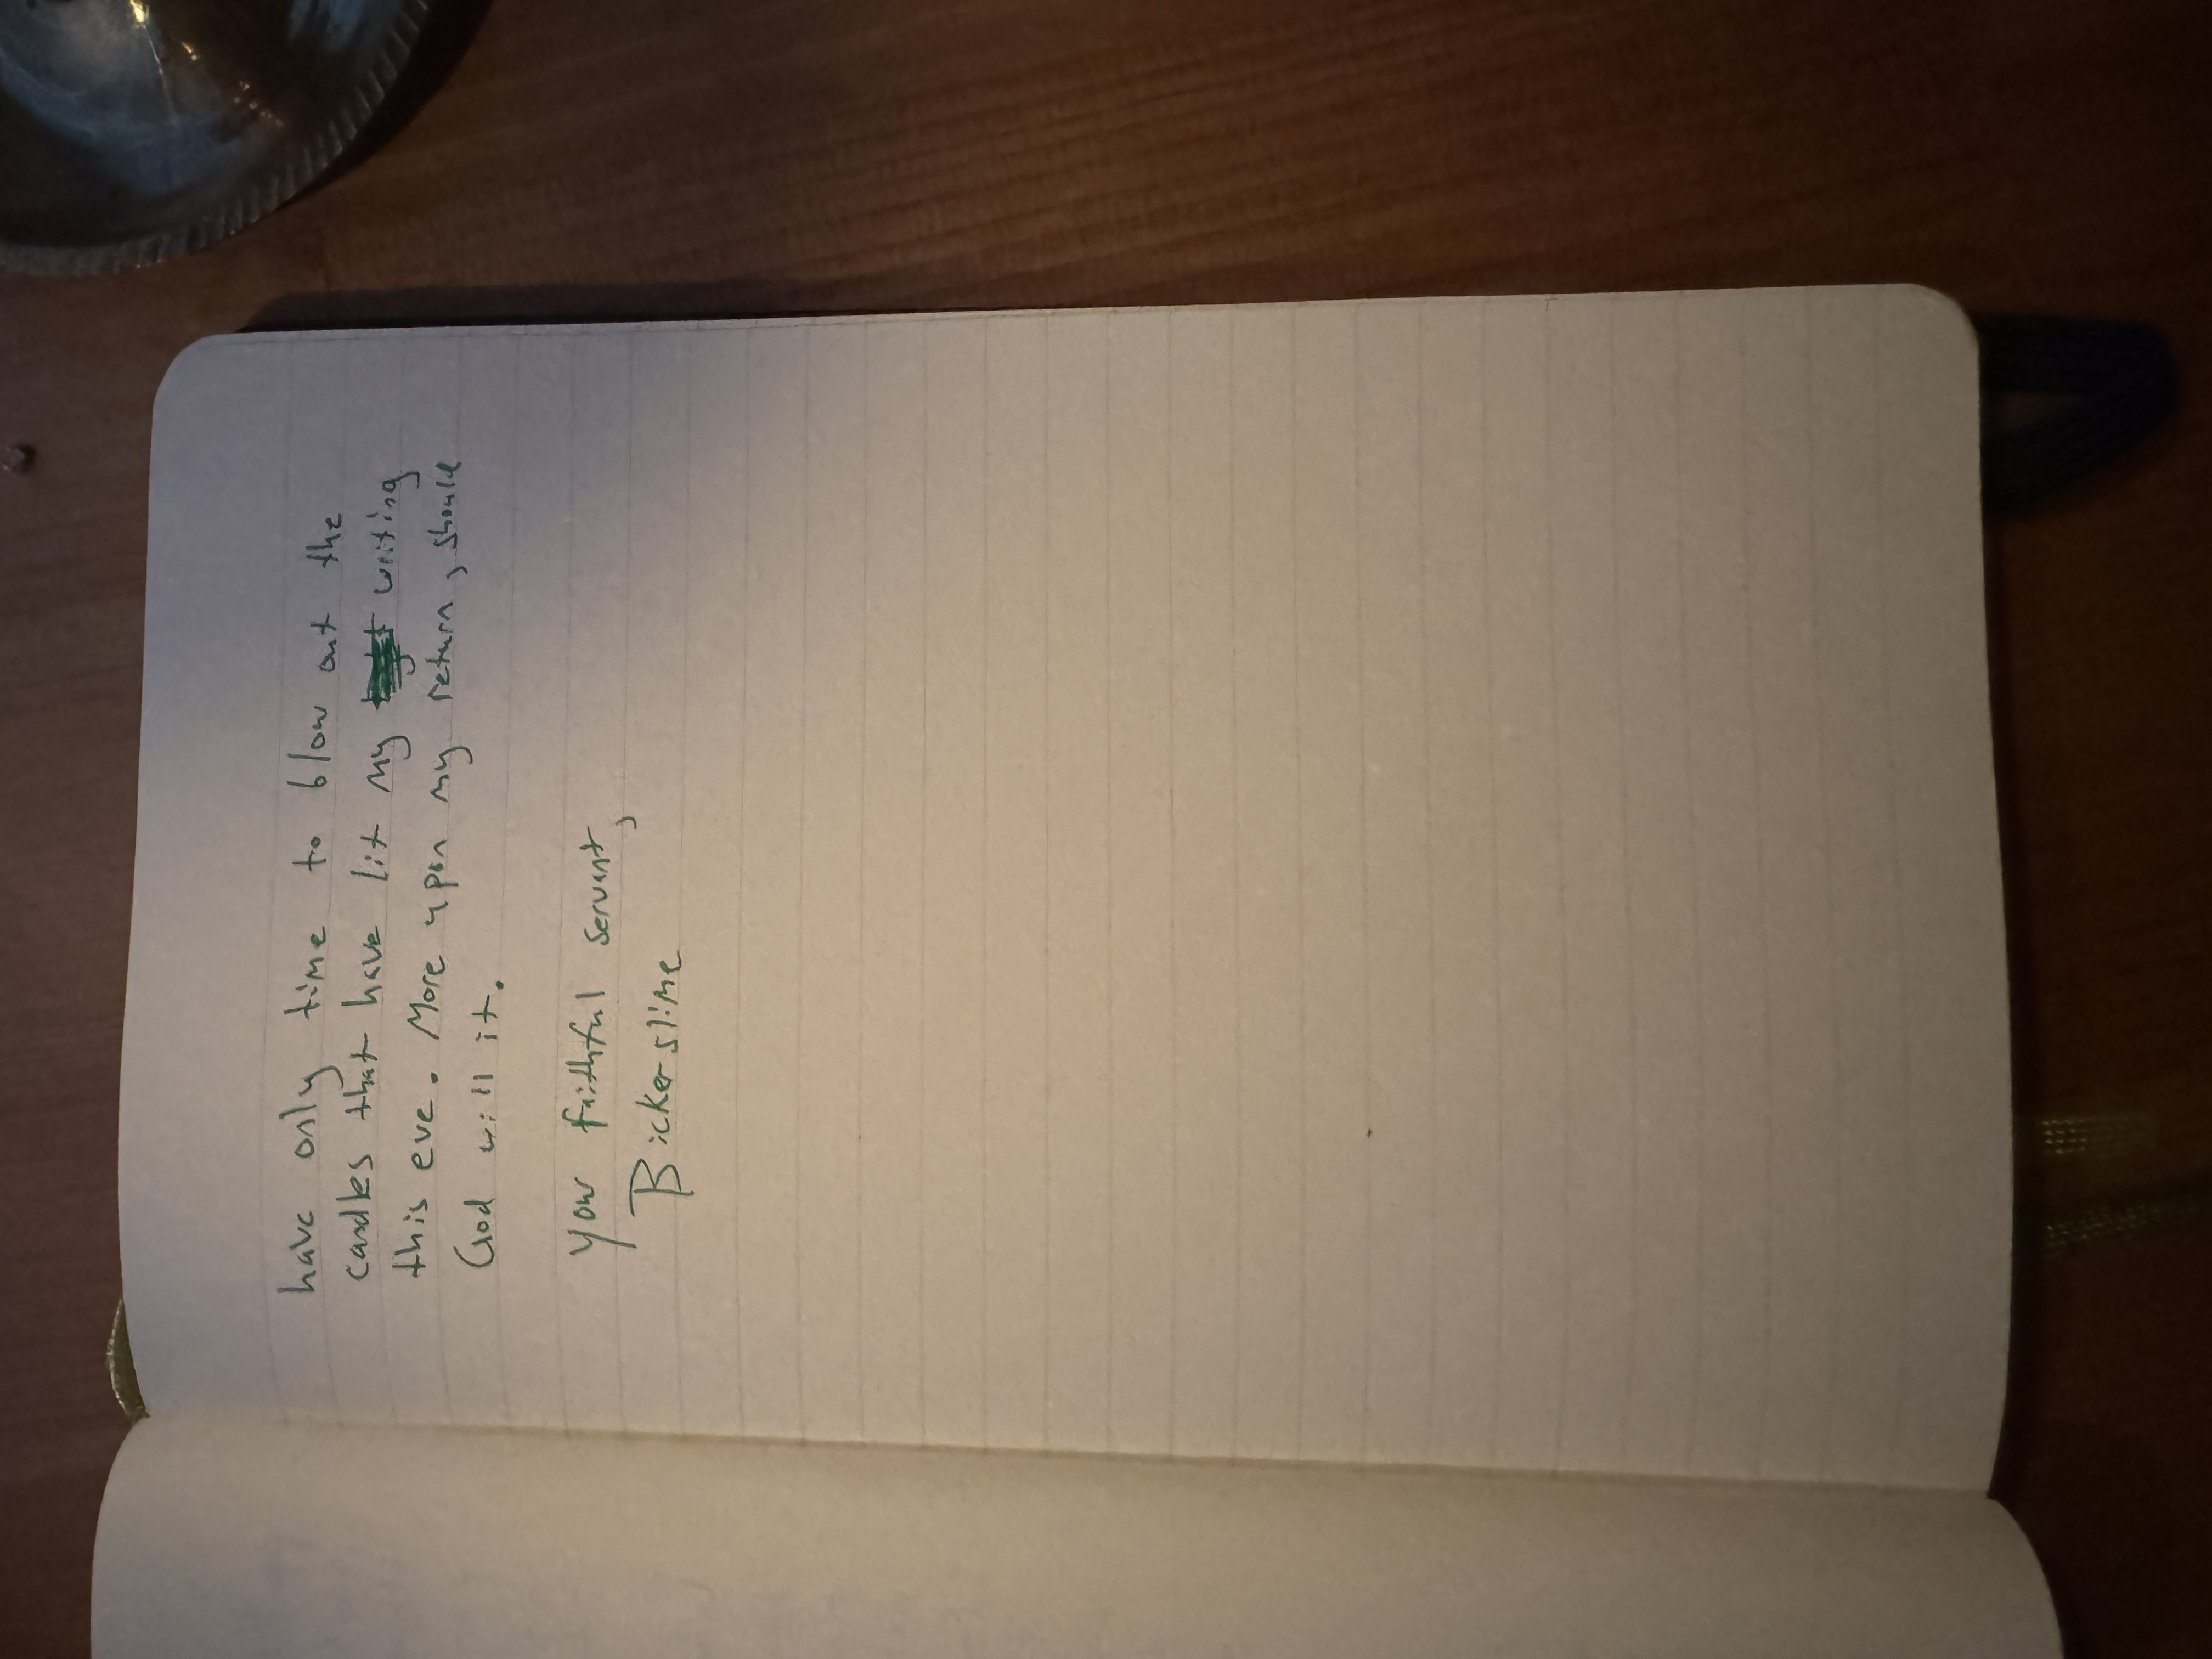 have only time to blow out the
candles that have lit my writing
this eve. More upon my return, should
God will it.
Your faithful servant,
Bickerslime